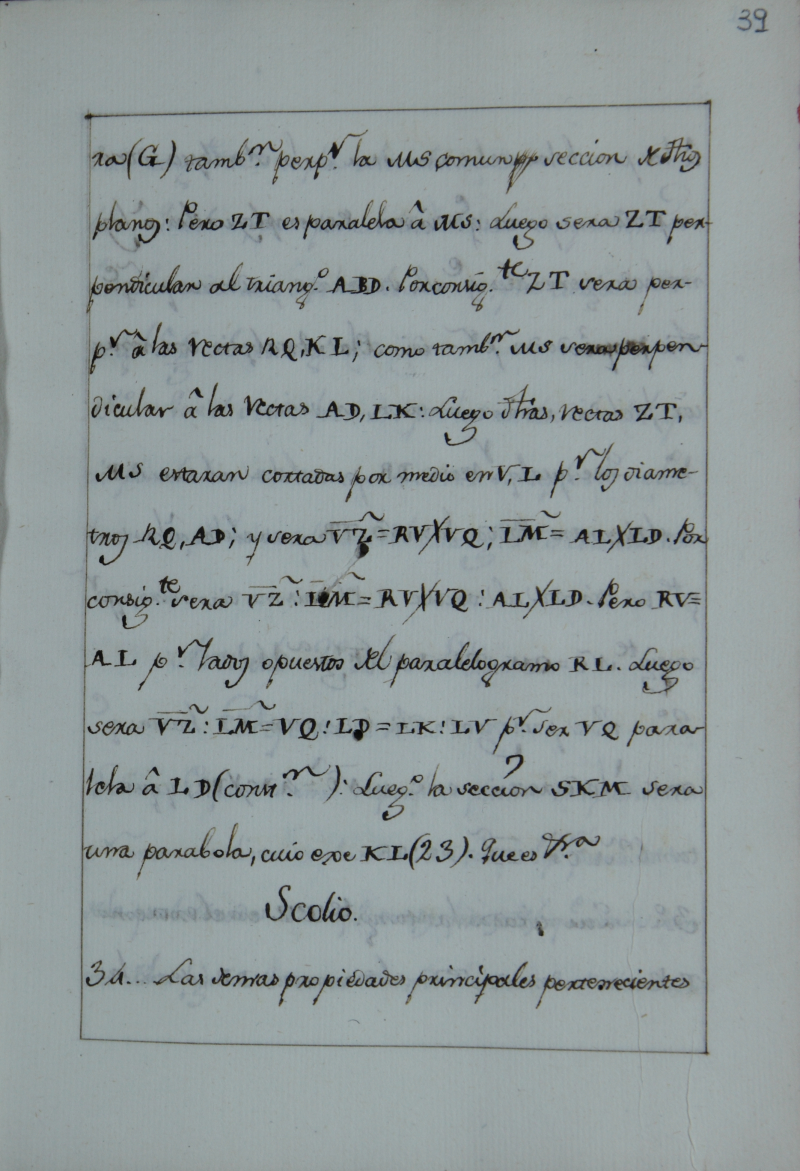 39
ra (G) tamb.n perp.r la MS comun seccion
planos: Pero ZT es paralela â MS: Luego sera ZT per-
pendicular al triang.o ABD. Por consig.te ZT sera per-
p.r â las rectas RQ, KL; como tamb.n MS sera perpen-
dicular â las rectas AD, LK: Luego dhas, rectas ZT,
MS estaran cortadas por medio en V, L p.r los diame-
tros RQ, AD; y sera VZ̃ = RV╳VQ; LM̃ = AL╳LD. Por
consig.te sera VZ̃ : LM̃ = RV╳VQ : AL╳LD. Pero RV=
AL p.r lados opuestos del paralelogramo RL. Luego
sera VZ̃ : LM̃ = VQ : LD = LK : LV p.r ser VQ para-
lela â LD (constr.n): Lueg.o la seccion SKM sera
una parabola, cuio exe KL (23). Que es
Scolio.
34... Las demas propiedades principales pertenecientes